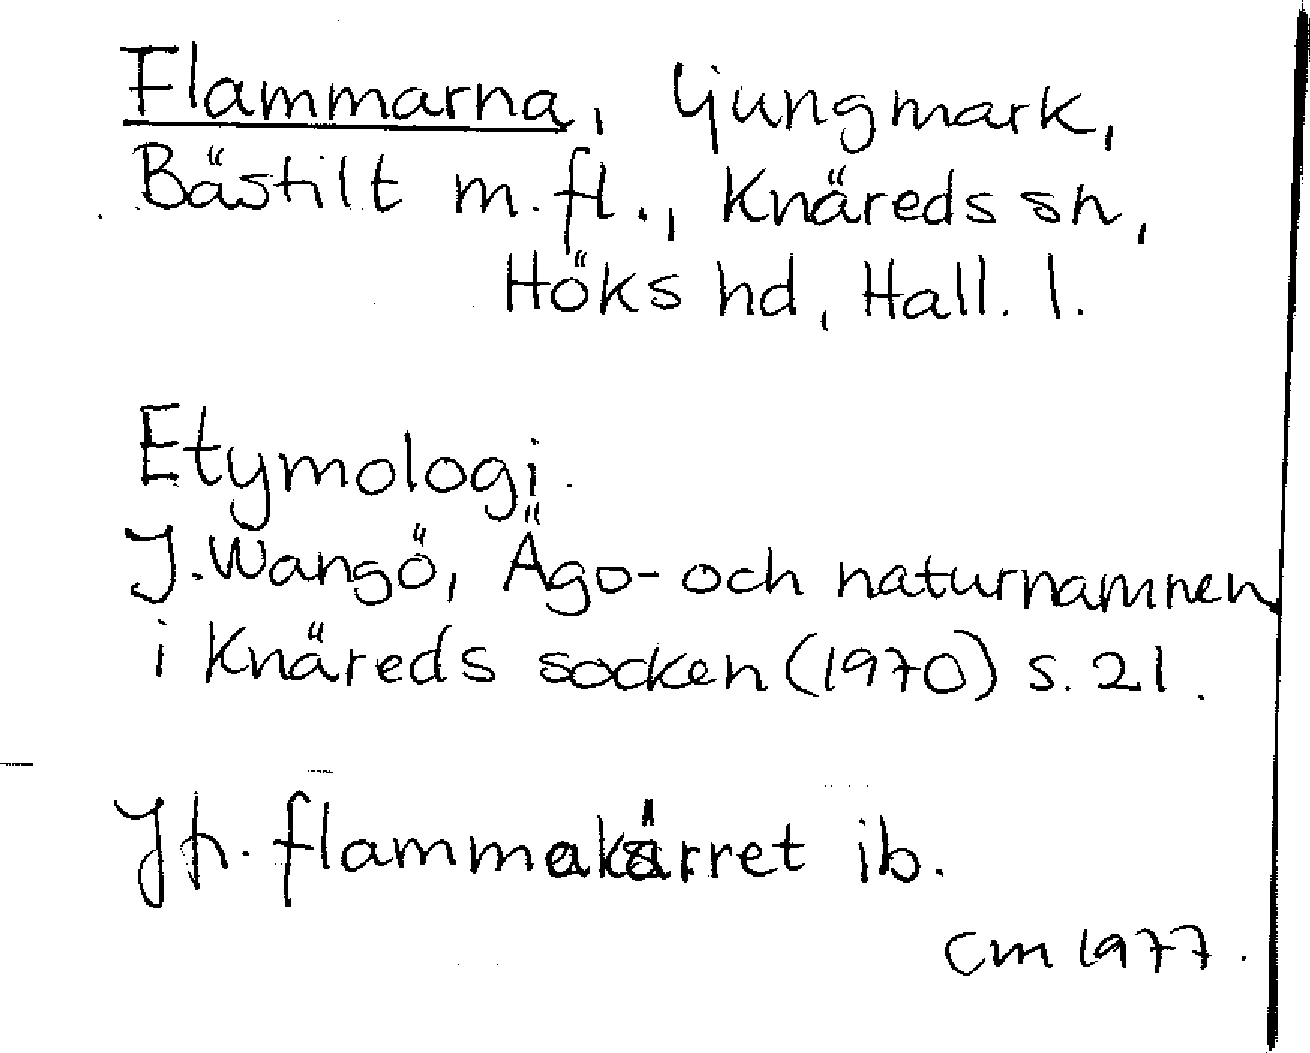 Flammarna, ljungmark,
Bästilt m.fl., Knäreds sn,
Höks hd, Hall. l.
Etymologi.
J. Wangö, Ägo- och naturnamnen
i Knäreds socken (1970) s. 21.
Jfr. flammakärret ib.
CM 1977.